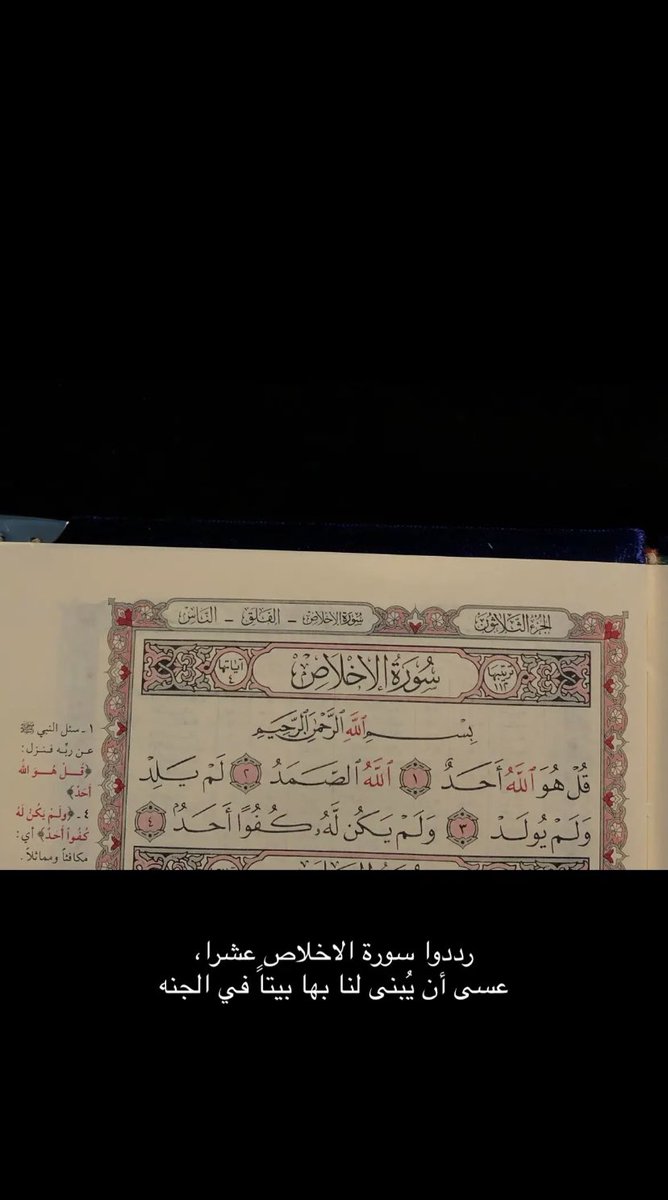 الجزء الثلاثون
سورة الإخلاص - الفلق - الناس
ترتيبها ١١٢
سُورَةُ الإِخْلَاصِ
آياتها ٤
بِسْمِ ٱللَّهِ ٱلرَّحْمَٰنِ ٱلرَّحِيمِ
قُلْ هُوَ ٱللَّهُ أَحَدٌ ١ ٱللَّهُ ٱلصَّمَدُ ٢ لَمْ يَلِدْ
وَلَمْ يُولَدْ ٣ وَلَمْ يَكُن لَّهُۥ كُفُوًا أَحَدٌۢ ٤
١ ـ سئل النبي ﷺ
عن ربِّه فنزل:
﴿قُلْ هُوَ اللهُ
أَحَدٌ﴾
٤ ـ ﴿وَلَمْ يَكُنْ لَهُ
كُفُواً أَحَدٌ﴾ أي:
مكافئاً ومماثلاً.
رددوا سورة الاخلاص عشرا،
عسى أن يُبنى لنا بها بيتاً في الجنه